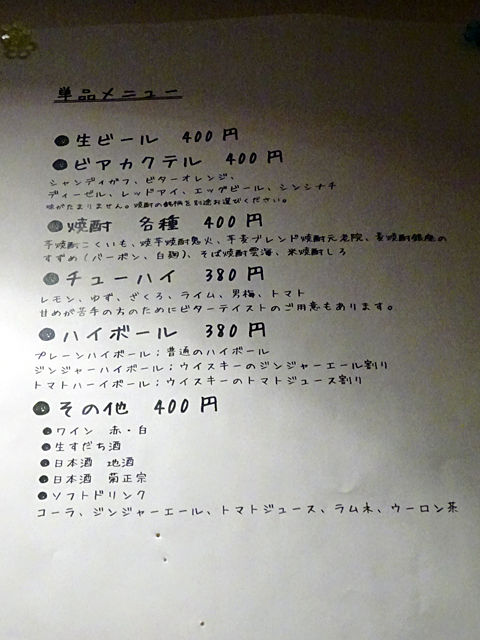 単品メニュー
●生ビール 400円
●ビアカクテル 400円
シャンディガフ、ビターオレンジ、
ディーゼル、レッドアイ、エッグビール、シンシナチ
味がたまりません。焼酎の銘柄を別途お選びください。
●焼酎 各種 400円
芋焼酎こくいも、焼芋焼酎鬼火、芋麦ブレンド焼酎元老院、麦焼酎銀座の
すずめ（バーボン、白麹）、そば焼酎雲海、米焼酎しろ
●チューハイ 380円
レモン、ゆず、ざくろ、ライム、男梅、トマト
甘めが苦手の方のためにビターテイストのご用意もあります。
●ハイボール 380円
プレーンハイボール；普通のハイボール
ジンジャーハイボール；ウイスキーのジンジャーエール割り
トマトハーイボール；ウイスキーのトマトジュース割り
●その他 400円
●ワイン 赤・白
●生すだち酒
●日本酒 地酒
●日本酒 菊正宗
●ソフトドリンク
コーラ、ジンジャーエール、トマトジュース、ラムネ、ウーロン茶